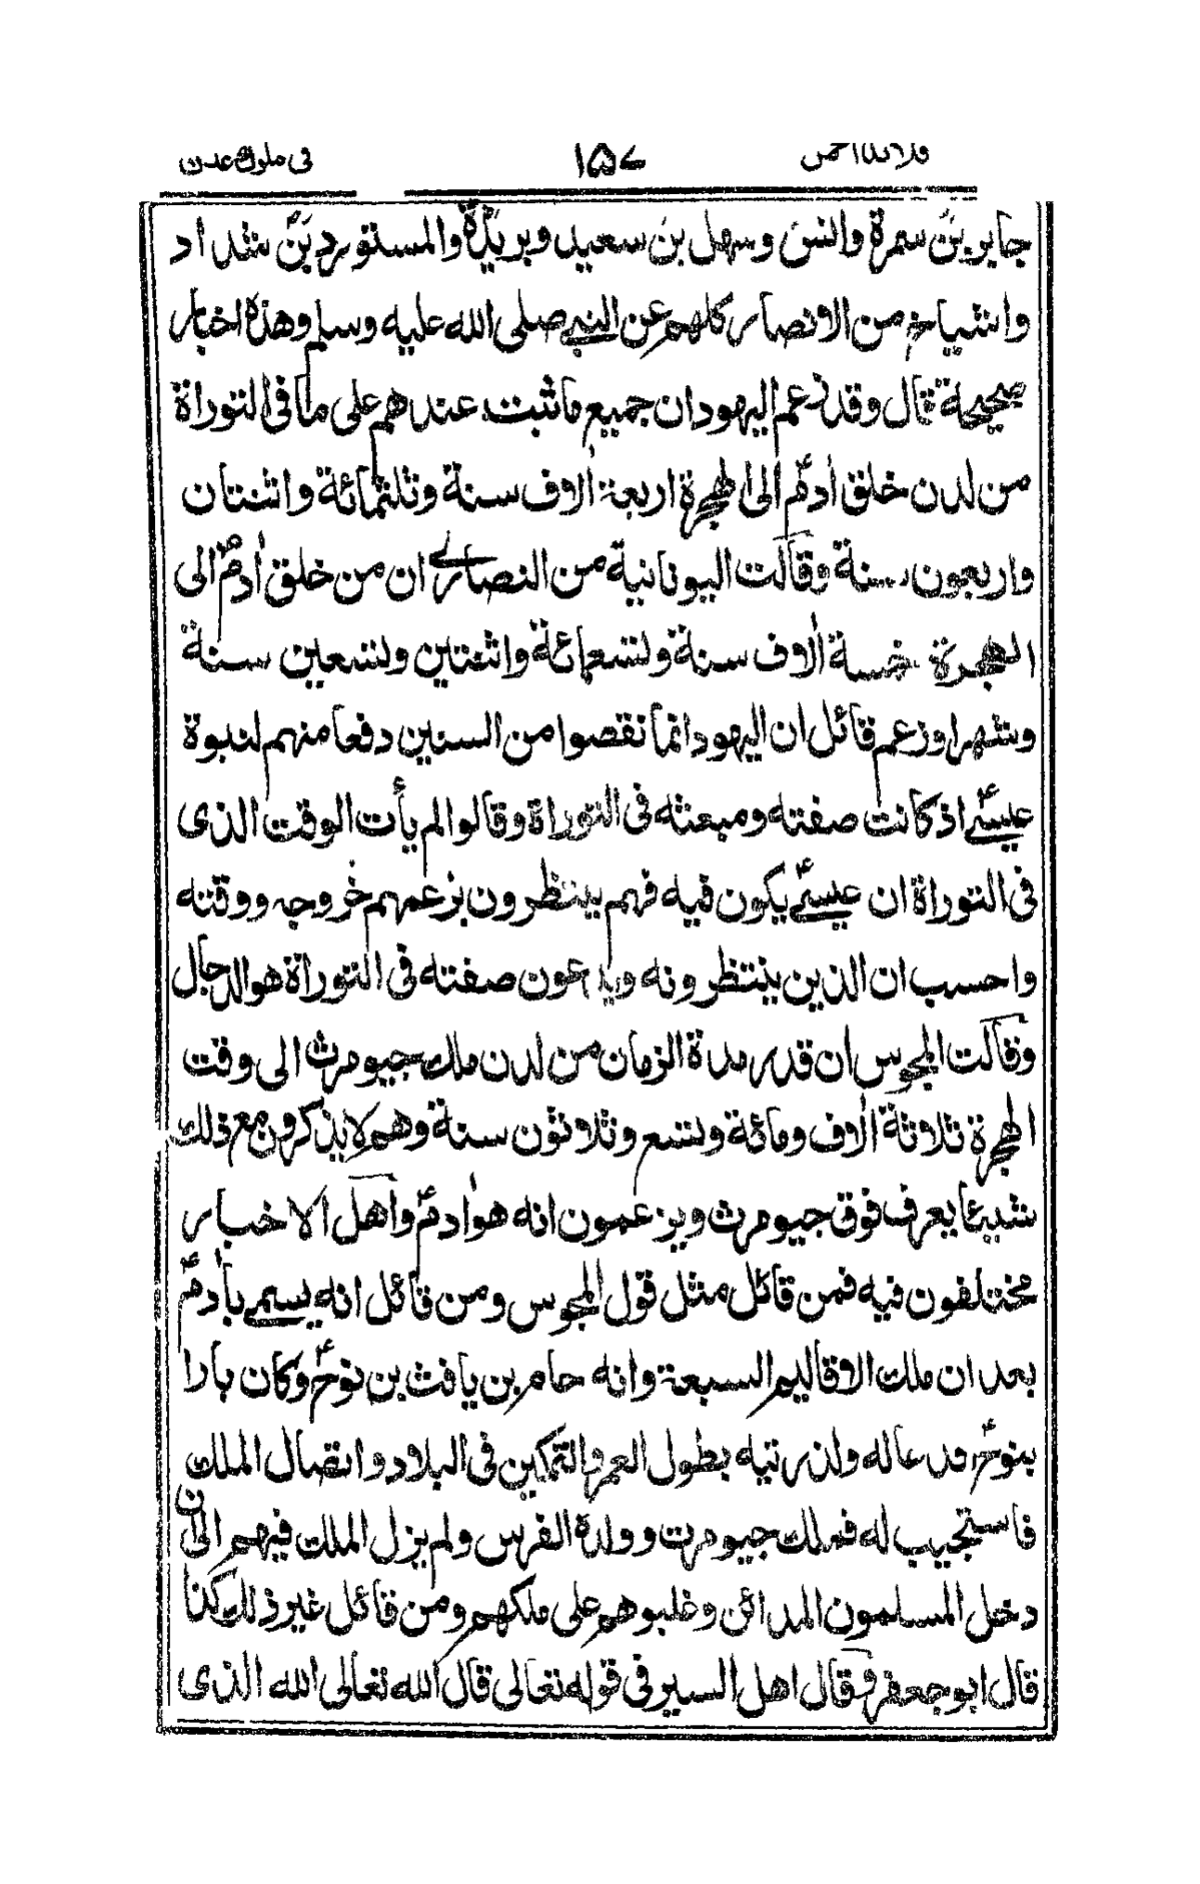 قلائد الحمن ١٥٧ فى ملوك عدن
جابر بن سمرة وانس وسهل بن سعيد وبريدة والمستورد بن شداد
واشياخ من الانصار كلهم عن النبى صلى الله عليه وسلم وهذه اخبار
صحيحة قال وقد زعم اليهود ان جميع ما ثبت عندهم على ما فى التوراة
من لدن خلق اٰدمؑ الى الهجرة اربعة اٰلاف سنة وثلثمائة واثنتان
واربعون سنة وقالت اليونانية من النصارى ان من خلق اٰدمؑ الى
الهجرة خمسة اٰلاف سنة وتسعمائة واثنتين وتسعين سنة
وشهرا وزعم قائل ان اليهود انما نقصوا من السنين دفعا منهم لنبوة
عيسىؑ اذ كانت صفته ومبعثه فى التوراة وقالوا لم يأت الوقت الذى
فى التوراة ان عيسىؑ يكون فيه فهم ينتظرون بزعمهم خروجه ووقته
واحسب ان الذين ينتظرونه ويدعون صفته فى التوراة هو الدجال
وقالت المجوس ان قدر مدة الزمان من لدن ملك جيومرث الى وقت
الهجرة ثلاثة اٰلاف ومائة وتسع وثلاثون سنة وهم لا يذكرون مع ذلك
شيئا يعرف فوق جيومرث ويزعمون انه هو اٰدمؑ واهل الاخبار
مختلفون فيه فمن قائل مثل قول المجوس ومن قائل انه يسمى باٰدمؑ
بعد ان ملك الاقاليم السبعة وانه حام بن يافث بن نوحؑ وكان بارا
بنوحؑ فدعا له ولذريته بطول العمر والتمكين فى البلاد واتصال الملك
فاستجيب له فملك جيومرث وولده الفرس ولم يزل الملك فيهم الى ان
دخل المسلمون المدائن وغلبوهم على ملكهم ومن قائل غير ذلك كذا
قال ابو جعفر وقال اهل السير فى قوله تعالى قال الله تعالى الله الذى